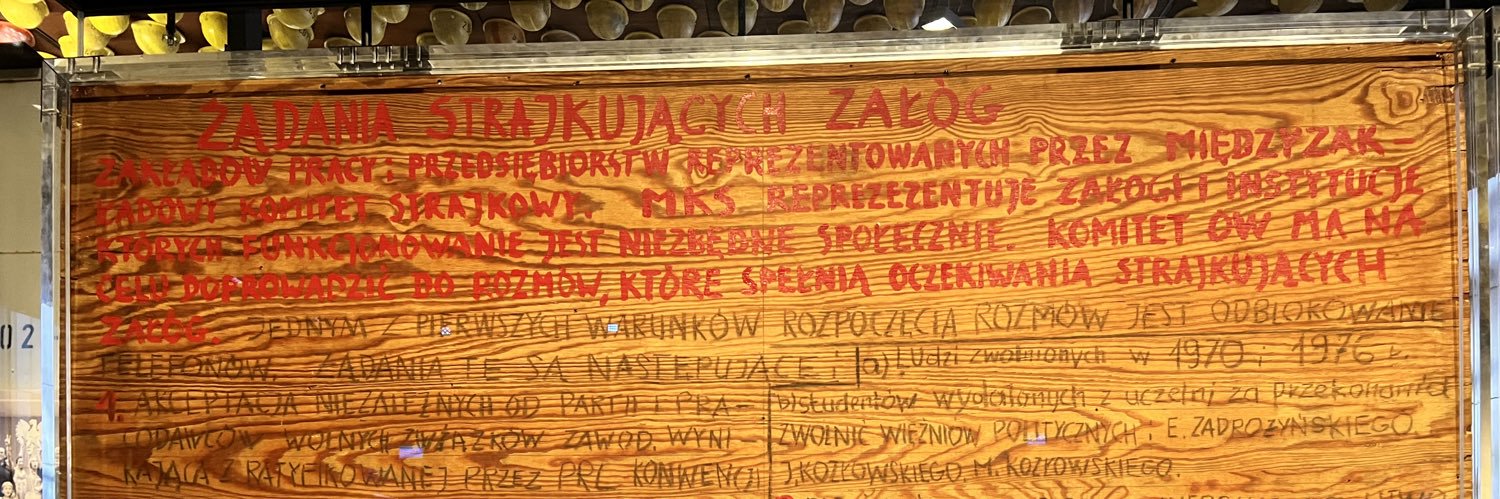 ŻĄDANIA STRAJKUJĄCYCH ZAŁÓG
ZAKŁADÓW PRACY i PRZEDSIĘBIORSTW REPREZENTOWANYCH PRZEZ MIĘDZYZAK-
ŁADOWY KOMITET STRAJKOWY. MKS REPREZEZENTUJE ZAŁOGI I INSTYTUCJE
KTÓRYCH FUNKCJONOWANIE JEST NIEZBĘDNE SPOŁECZNIE. KOMITET ÓW MA NA
CELU DOPROWADZIĆ DO ROZMÓW, KTÓRE SPEŁNIĄ OCZEKIWANIA STRAJKUJĄCYCH
ZAŁÓG. JEDNYM Z PIERWSZYCH WARUNKÓW ROZPOCZĘCIA ROZMÓW JEST ODBLOKOWANIE
TELEFONÓW. ŻĄDANIA TE SĄ NASTĘPUJĄCE:
1. AKCEPTACJA NIEZALEŻNYCH OD PARTII I PRA-
CODAWCÓW WOLNYCH ZWIĄZKÓW ZAWOD. WYNI-
KAJĄCA Z RATYFIKOWANEJ PRZEZ PRL KONWENCJI
a) ludzi zwolnionych w 1970 i 1976 r.
b) studentów wydalonych z uczelni za przekonania
ZWOLNIĆ WIĘŹNIÓW POLITYCZNYCH: E. ZADROŻYŃSKIEGO
J. KOZŁOWSKIEGO M. KOZŁOWSKIEGO.
02